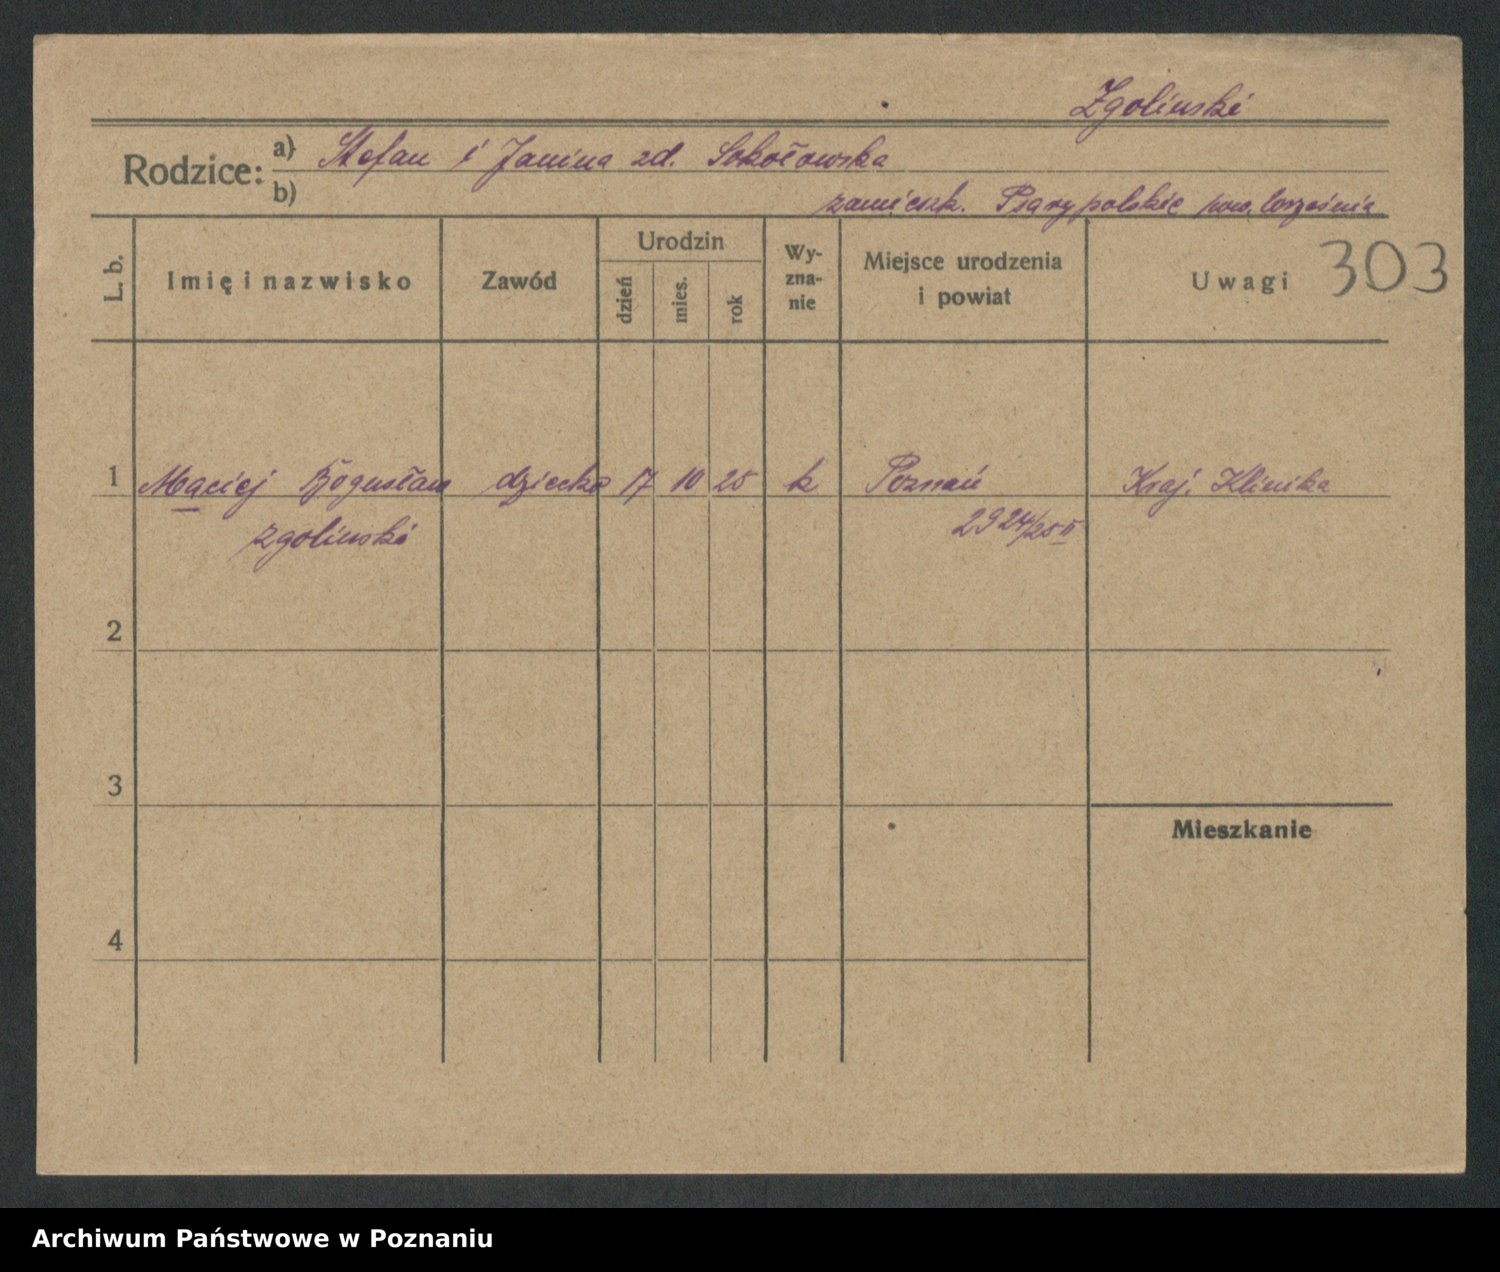 Zgoliński
Rodzice: a) Stefan i Janina zd. Sokołowska
b) zamieszk. Psary polskie pow. Września
L. b. Imię i nazwisko Zawód Urodzin dzień mies. rok Wy-zna-nie Miejsce urodzenia i powiat Uwagi 303
1 Maciej Bogusław dziecko 17 10 25 k Poznań Kraj. Klinika
Zgoliński 2924/25 II
2
3
Mieszkanie
4
Archiwum Państwowe w Poznaniu